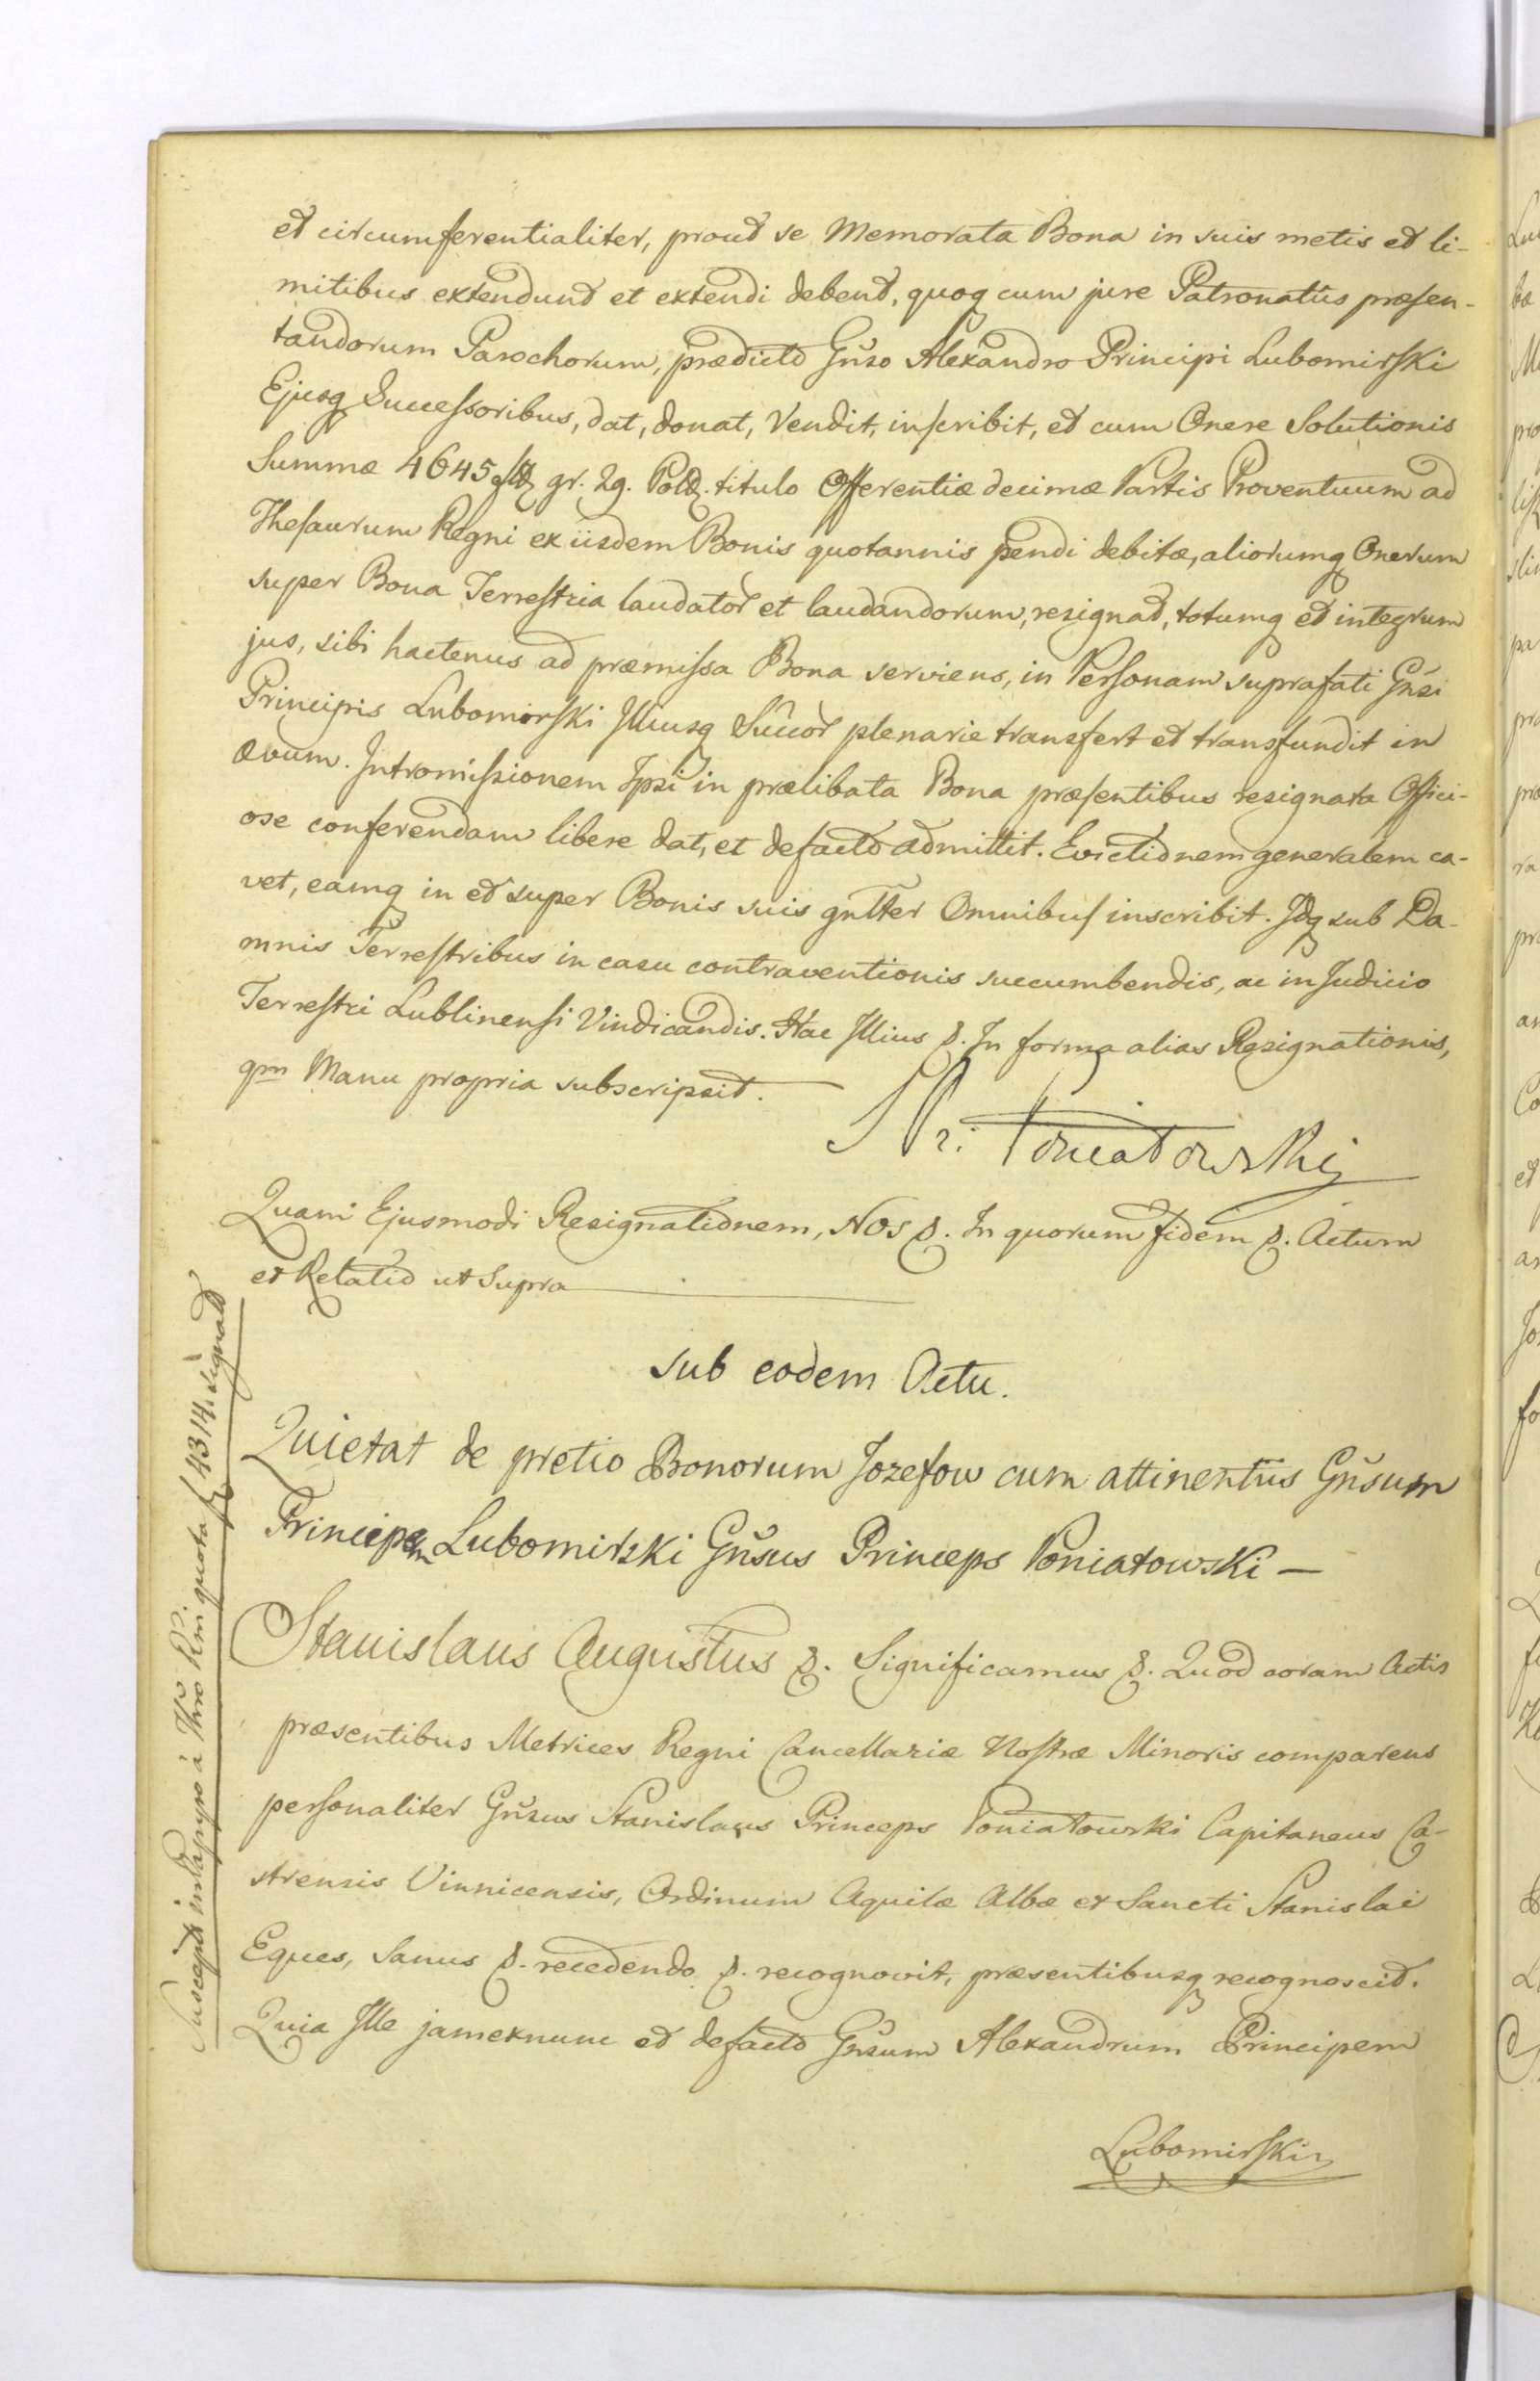 et circumferentialiter, prout se Memorata Bona in suis metis et li-
mitibus extendunt et extendi debent, quoq cum jure Patronatûs præsen-
tandorum Parochorum, prædicto Gñso Alexandro Principi Lubomirski
Ejusq Successoribus, dat, donat, Vendit, inscribit, et cum Onere Solutionis
Summæ 4645 gr. 29. Pol. titulo Offerentiæ decimæ Partis Proventuum ad
Thesaurum Regni ex iisdem Bonis quotannis pendi debitæ, aliorumq Onerum
super Bona Terrestria laudator et laudandorum, resignat, totumq et integrum
jus, sibi hactenus ad præmissa Bona serviens, in Personam suprafati Gñsi
Principis Lubomirski Illiusq Succor plenarie transfert et transfundit in
ævum. Intromissionem Ipsi in prælibata Bona præsentibus resignata Offici-
ose conferendam libere dat, et defacto admittit. Evictionem generalem ca-
vet, eamq in et super Bonis suis gnlter Omnibus inscribit. Idq sub Da-
mnis Terrestribus in casu contraventionis succumbendis, ac in Judicio
Terrestri Lublinensi Vindicandis. Hac Illius &. In forma alias Resignationis,
qm Manu propria subscripsit.
S Pr: Poniatowski
Quam Ejusmodi Resignationem, Nos &. In quorum fidem &. Actum
et Relatio ut Supra
Sub eodem Actu.
Quietat de pretio Bonorum Jozefow cum attinentiis Gñsum
Principem Lubomirski Gñsus Princeps Poniatowski —
Stanislaus Augustus &. Significamus &. Quod coram Actis
præsentibus Metrices Regni Cancellariæ Nostræ Minoris comparens
personaliter Gñsus Stanislaus Princeps Poniatowski Capitaneus Ca-
strensis Vinnicensis, Ordinum Aquilæ Albæ et Sancti Stanislai
Eques, Sanus &. recedendo &. recognovit, præsentibusq recognoscit.
Quia Ille jamexnunc et defacto Gñsum Alexandrum Principem
Lubomirski
Suscepta in Papyro à Thro quota 4314. signato